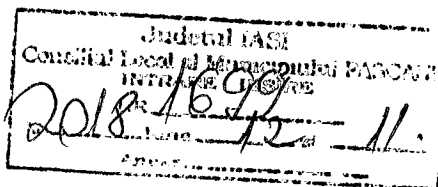 Judetul IASI
Consiliul Local al Municipiului PASCANI
INTRARE
NR. 1699
2018 luna 12 zi 11